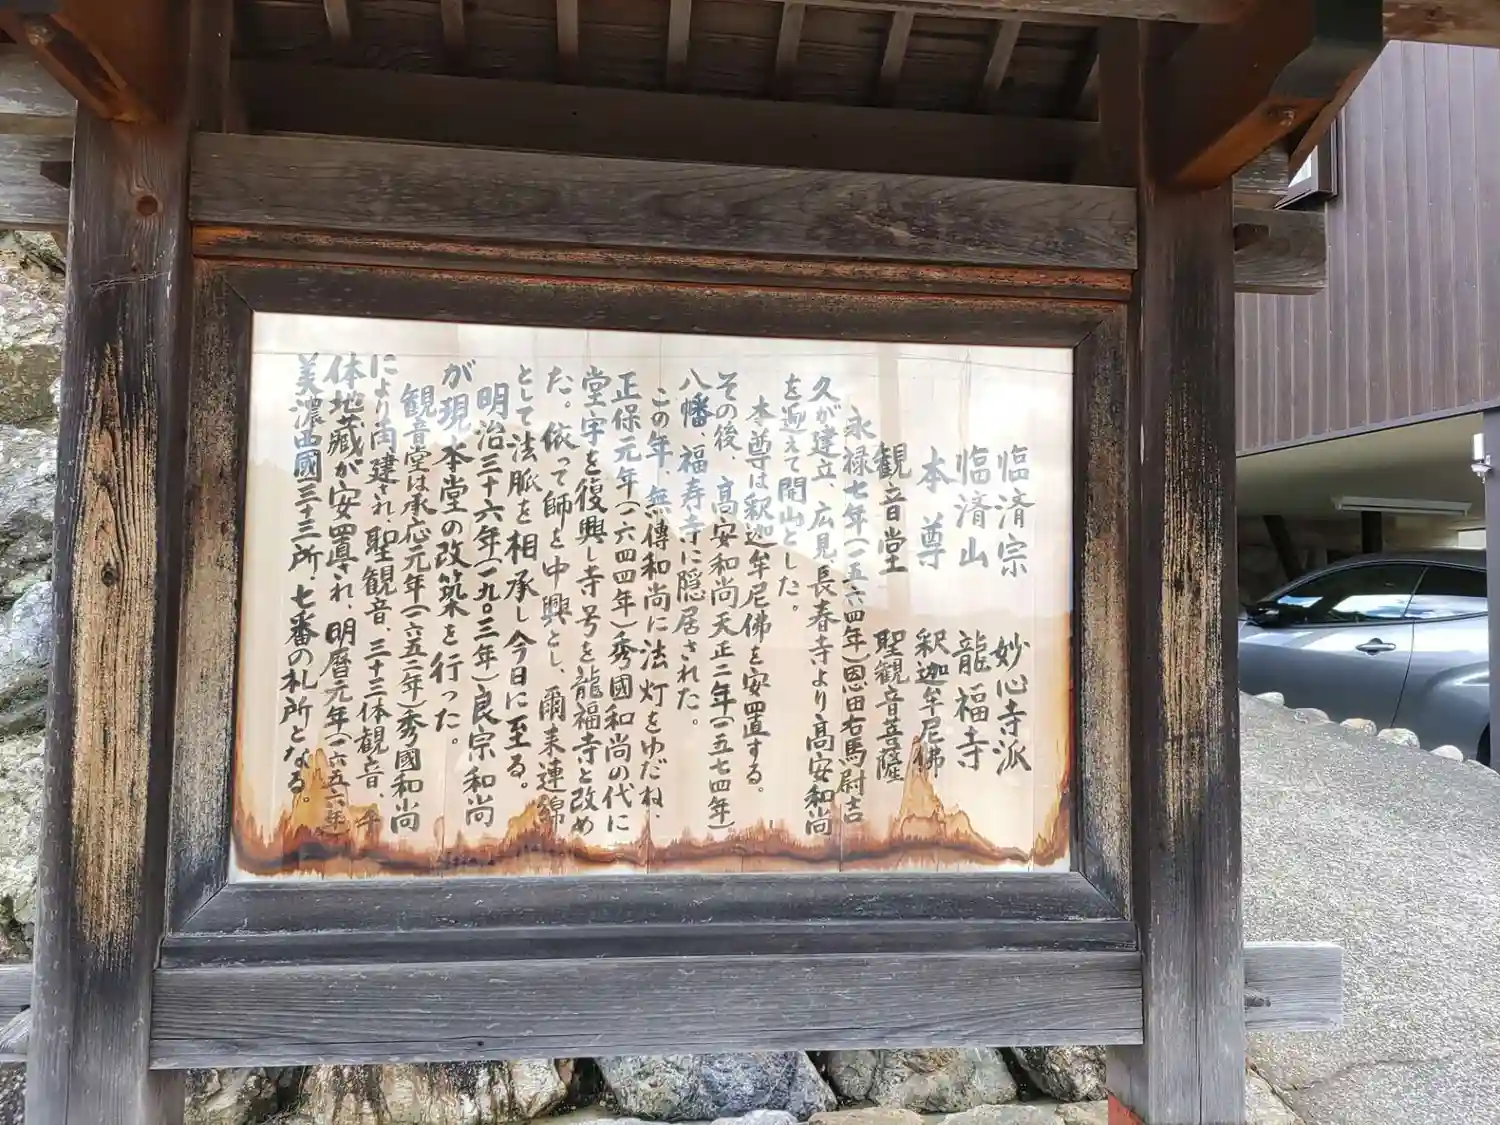 臨済宗 妙心寺派
臨済山 龍福寺
本尊 釈迦牟尼佛
観音堂 聖観音菩薩
永禄七年(一五六四年)恩田右馬尉吉
久が建立、広見長春寺より高安和尚
を迎えて開山とした。
本尊は釈迦牟尼佛を安置する。
その後、高安和尚天正二年(一五七四年)
八幡、福寿寺に隠居された。
この年、無傳和尚に法灯をゆだね、
正保元年(一六四四年)秀國和尚の代に
堂宇を復興し寺号を龍福寺と改め
た。依って師を中興とし、爾来連綿
として法脈を相承し今日に至る。
明治三十六年(一九〇三年)良宗和尚
が現本堂の改築を行った。
観音堂は承応元年(一六五二年)秀國和尚
により再建され、聖観音、三十三体観音、千
体地蔵が安置され、明暦元年(一六五六年)
美濃西國三十三所、七番の札所となる。